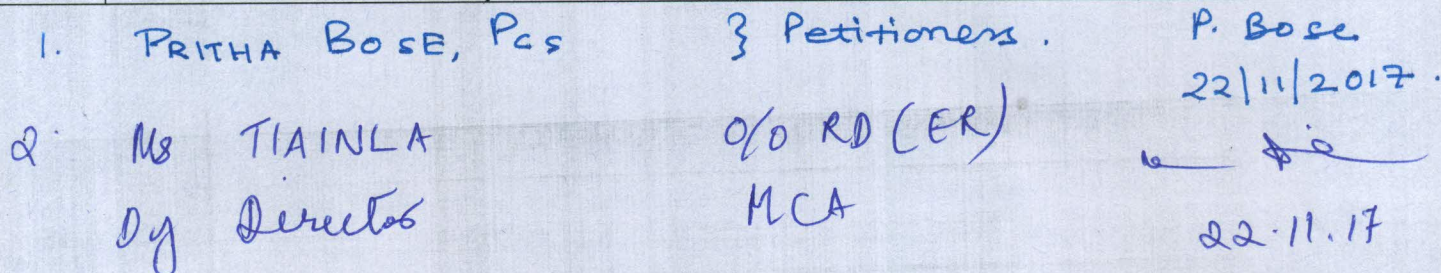 1. PRITHA BOSE, PCS } Petitioners. P. Bose
22/11/2017.
2. Ms TIAINLA O/O RD (ER)
Dy Director MCA 22.11.17